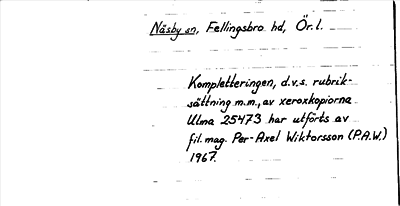 Näsby sn, Fellingsbro hd, Ör. l.
Kompletteringen, d.v.s. rubrik-
sättning m.m., av xeroxkopiorna
Ulma 25473 har utförts av
fil. mag. Per-Axel Wiktorsson (P.A.W.)
1967.